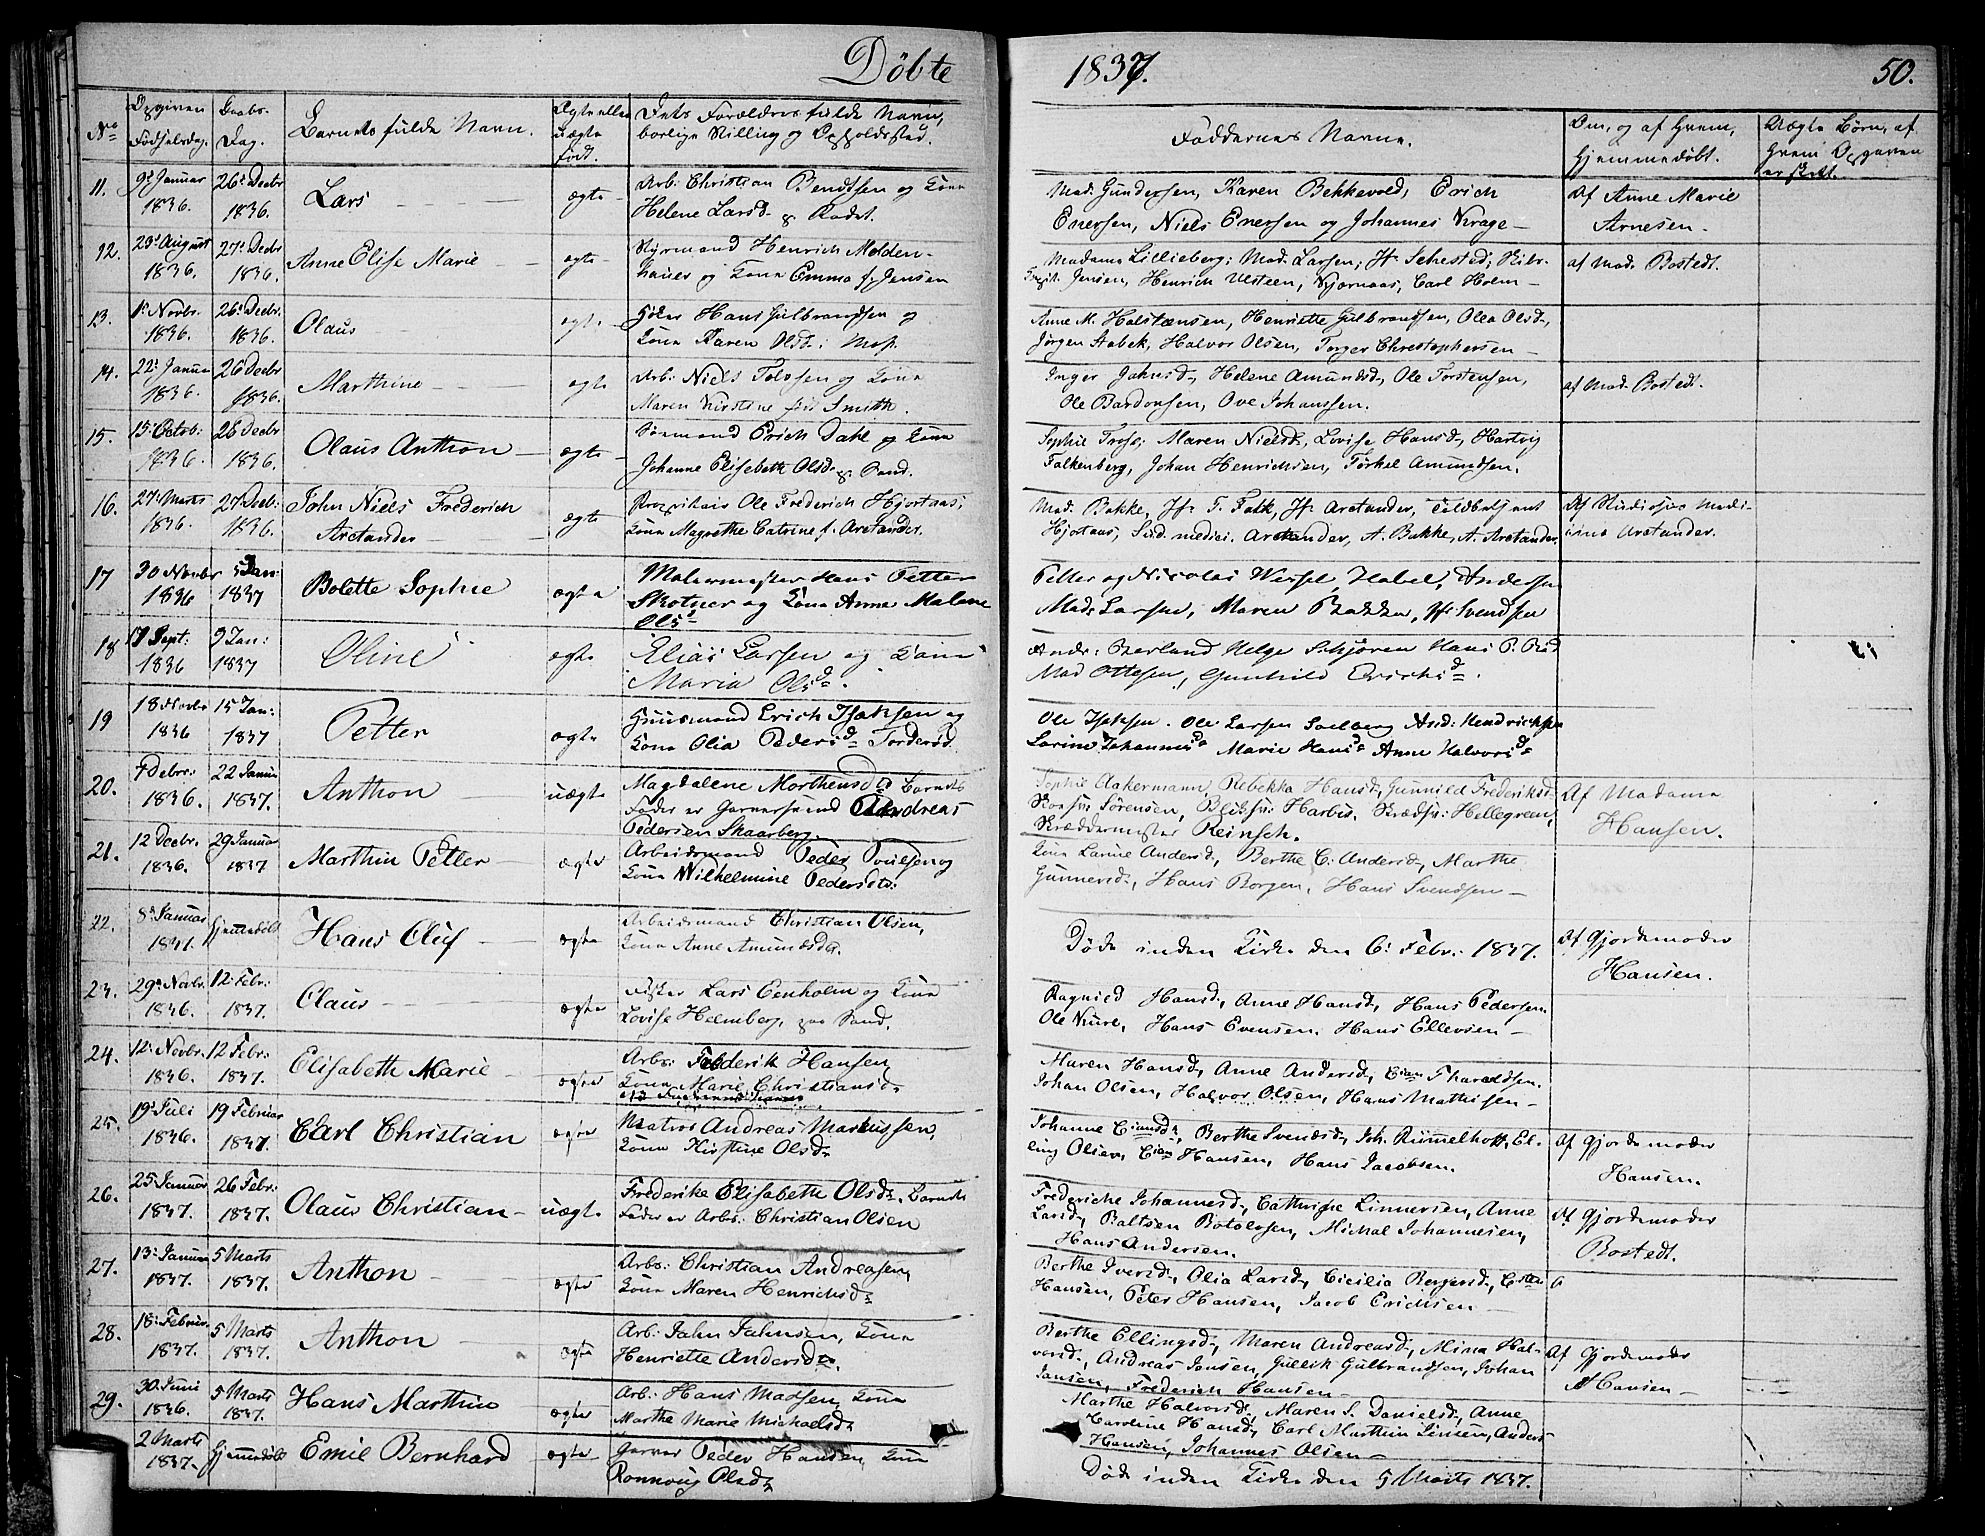 Döbte
1837.
50.
No
Opgiven Fødselsdag.
Daabs-Dag.
Barnets fulde Navn.
Ægte eller uægte Født.
Dets Forældres fulde Navn, borlige Stilling og Opholdssted.
Faddernes Navne.
Om, og af Hvem, hjemmedöbt.
Uægte Börn, af
11. 9d Januar 1836. 26d Decbr 1836. Lars ægte
Arb: Christian Bendtsen og Kona
Helene Larsd.
Mad. Gundersen, Karen Bekkevold, Erich
Enersen, Niels Enersen og Johannes Krage
Af Anne Marie
Arnesen
12. 23d August 1836. 27d Decbr 1836. Anne Elise Marie ægte
Styrmand Henrich Molden-
hauer og Kona Emma f. Jensen
Madame Lillieberg; Mad. Larsen; Jf. Sehested; Skibs-
Jensen, Henrich Ulsteen, Carl Holm
af Mad. Bostedt.
13. 1d Novbr. 1836. 26d Decbr. 1836. Olaus ægte
Hans Gulbrandsen og
Kona Karen Olsd. i Moss.
Anne M. Halstensen, Henriette Gulbransen, Olea Olsd.,
Jörgen Stabek, Halvor Olsen, Torger Christophersen
14. 22d Januar 1836. 26 Decbr 1836. Marthine ægte
Arb: Niels Tolvsen og Kona
Maren Kirstine född Smith.
Inger Johnsd., Helene Amundsd., Ole Torstensen,
Ole Bardonsen, Ove Johanssen.
af Mad. Bostedt.
15. 15d Octob: 1836. 26 Decbr 1836. Olaus Anthon ægte
Erich Dahl og Kona
Johanne Elisebeth Olsd. Sand.
Sophie Maren Nielsd., Lovise Hansd., Hartvig
Falkenberg, Johan Henrichsen, Törkel Amundsen.
16. 27d Marts 1836. 27 Decb: 1836. John Niels Frederich
Arctander ægte
Ole Frederich Hjortaas;
Kona Magrethe Catrine f. Arctander.
Mad. Bakke, Jf. T. Falk, Jf. Arctander, Toldbetjent
Hjortaas, Stud. medici. Arctander, A. Bakke, A. Arctander.
Af Arctander.
17 30 Novbr 1836 5 Jan: 1837 Bolette Sophie ægte
Malermester Hans Petter
Skotner og Kona Anne Malene
Olsd
Petter og Nicolai Wessel, Habel, Andersen
Mad. Larsen, Maren Bakke, Jf: Svendsen
18 17 Sept: 1836 9 Jan: 1837 Oline ægte
Elias Larsen og Kone
Maria Olsd.
Andr: Berland Helge Schjören Hans P.
Mad Ottesen, Gunhild Erichsd.
19 18 Novbr 1836 15 Jan: 1837 Petter ægte
Huusmand Erich Isaksen og
Kona Olia Pedersd Torderöd.
Ole Isaksen. Ole Larsen Soelberg And: Hendrichsen
Larine Johannisd Marie Hansd Anne Halvorsd
20. 1836. 22 Januar 1837. Anthon uægte
Magdalene Morthensd. Barnets
Fader er Garversvend Andreas
Pedersen Skaarberg.
Sophie Aakermann, Rebekka Hansd., Gunnild Frederiksd.
Sörensen, Harbis. Hellegreen,
Skræddermester Reinsch.
Af Madame
Hansen.
21. 12 Decbr. 1836. 29 Januar 1837 Marthin Petter ægte
Arbeidsmand Peder Poulsen og
Kona Wilhelmine Pedersdtr.
Kona Larine Andersd., Berthe C. Andersd., Marthe
Gunnersd., Hans Borgen, Hans Svendsen
22. 8d Januar 1837. Hjemmedöbt Hans Oluf ægte
Arbeidsmand Christian Olsen,
Kona Anne Amundsdr.
Döde inden Kirke den 6: Febr. 1837.
Af Gjordemoder
Hansen.
23. 29d Novbr. 1836. 12 Febr: 1837. Olaus ægte
Fisker Lars Eenholm og Kona
Lovise Helmberg, paa Sand.
Ragnild Hansd., Anne Hansd., Hans Pedersen.
Ole Hans Evensen, Hans Ellevsen
24. 12: Novbr. 1836. 12 Febr: 1837. Elisabeth Marie ægte
Arb: Frederik Hansen
Kona Marie Christiansd.
Maren Hansd., Anne Andersd., Cian Tharaldsen.
Johan Olsen, Halvor Olsen, Hans Mathisen
25. 19d Juli 1836. 19 Februar 1837. Carl Christian ægte
Matros Andreas Markussen,
Kona Kirstine Olsdr.
Johanne Ciansd., Berthe Svendsd., Joh. Rummelhoff, El-
ling Olsen, Cian Hansen, Hans Jacobsen.
af Gjordemoder
Hansen.
26. 25 Januar 1837. 26 Febr: 1837. Olaus Christian uægte
Frederike Elisabeth Olsd. Barnets
Fader er Arb: Christian Olsen
Frederiche Johannesd., Cathrine Linnersen, Anne
Larsd., Baltsen Botolvsen, Michal Johannesen,
Hans Andersen.
Af Gjordemoder
Bostedt.
27. 13: Januar 1837. 5 Marts 1837. Anthon ægte
Arb: Christian Andreasen,
Kona Maren Henrichsdr
Berthe Iversd., Olia Larsd., Cicilia Bergersd., Cstian
Hansen, Peter Hansen, Jacob Erichsen
28. 18: Februar. 1837. 5 Marts 1837. Anthon ægte
Arb: John Johnsen, Kona
Henriette Andersdr.
Berthe Ellingsd., Maren Andreasd., Mina Hal-
vorsd., Andreas Jensen, Gullik Gulbrandsen, Johan
Jansen, Frederich Hansen
Af Gjordemoder
Hansen
29. 30 Juni 1836. 5 Marts 1837. Hans Marthin ægte
Arb: Hans Madsen, Kona
Marthe Marie Michaelsdr
Marthe Halvorsd., Maren S. Danielsd., Anne
Caroline Hansd., Carl Marthin Jensen, Anders
Hansen, Johannes Olsen
2 Marts 1837. Hjemmedöbt Emil Bernhard ægte
Garver Peder Hansen, Kona
Ronnoug Olsdr
Döde inden Kirke den 5 Marts 1837.